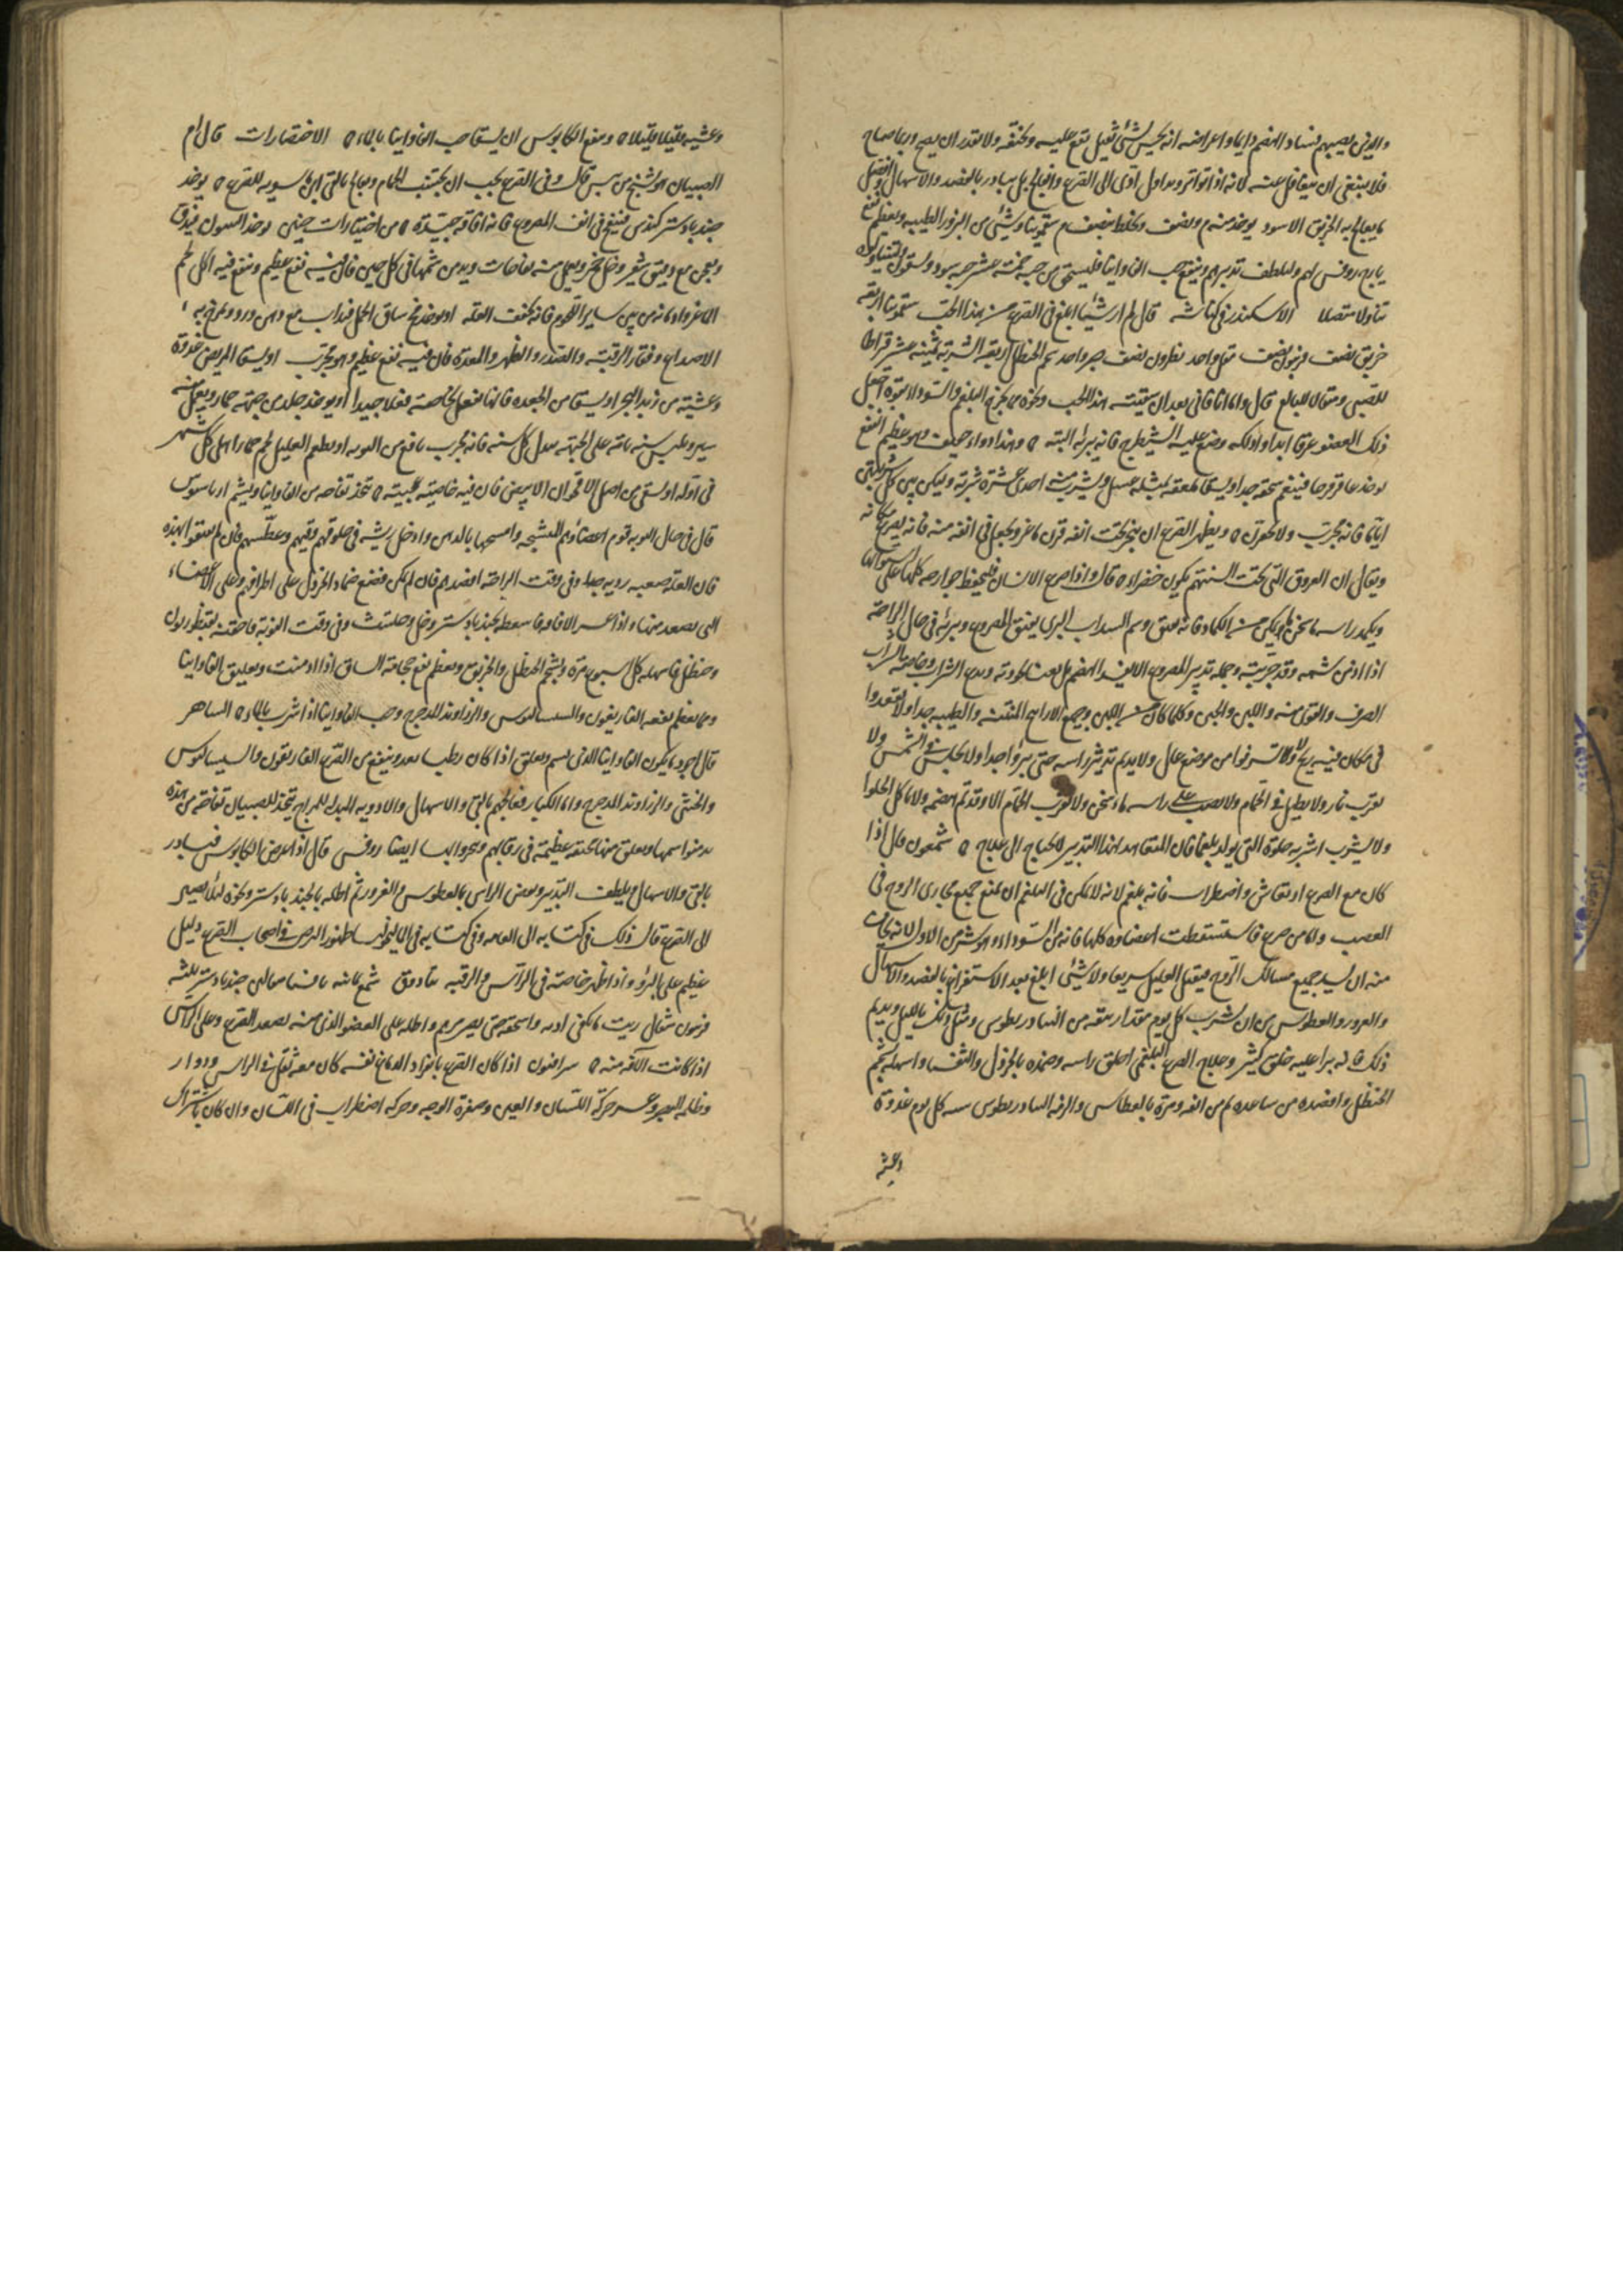 والذين يصيبهم فساد الهضم دايما واعراضه انه يحس بشئ ثقيل تقع عليه ويخنقه ولا يقدر ان يصيح وربما صاح
فلا ينبغي ان يتغافل عنه لانه اذا تواتر وتداول ادى الى الصرع والفالج بل يبادر بالفصد والاسهال وافضل
ما يعالج به الخربق الاسود يوخذ منه ونصف ويخلط بنصف سقمونيا وشئ من البزور الطيبة ويعظم نفع
يارج روفس لهم ولطف تدبيرهم وينفع حب الفاوانيا فليسحق منه خمسة عشر حبة سود
الاسكندر في كناشه قال لم ار شيئا ابلغ في الصرع من هذا الحب سقمونيا اربعة
خربق نصف فربيون نصف مقل واحد نطرون نصف صبر واحد شحم الحنظل اربعة الشربة ثمنية عشر قراطا
للصبي ومثقال للبالغ قال واما انا فاني بعد ان سقيته هذا الحب ونحوه مما يخرج البلغم والسوداء بقوة اجعل
ذلك العضو عرقا ابدا وادلكه وضع عليه الشيطرج فانه يبرئه البتة وهذا دواء عظيم النفع
يوخذ عاقرقرحا فينعم سحقه جدا بمثله عسل ويشرب منه احدى عشرة شربة وليكن بين كل شربتين
اياما فانه مجرب ويظهر الصرع ان يبخر تحت انفه قرن ماعز ويجعل في انفه منه فانه يصرع مكانه
ويقال ان العروق التي تحت السنتهم يكون خضراء قال واذا صرع الانسان فليحفظ جوارحه كلها
ويكمد راسه وشم السداب البري يفيق المصروع ويبرئه في حال الراحة
اذا ادمن شمه وقد جربته وجملة تدبير المصروع الا يفسد الهضم ويدع الشراب وخاصة
الصرف والقوي منه واللبن والجبن وكلما كان من اللبن وجميع الارايح المنتنة والطيبة جدا ولا يقعدوا
في مكان فيه ريح ولا يشرفوا من موضع عال ولا يديم تدثير راسه حتى يبرؤا جدا ولا يجلس في الشمس ولا
بقرب نار ولا يطيل في الحمام ولا يصب على راسه ماء سخن ولا يقرب الحمام الا وقد تم هضمه ولا ياكل الحلوا
ولا يشرب اشربة حلوة التي يولد بلغما فان المتعاهد لهذا التدبير لا يحتاج الى علاج شمعون قال اذا
كان مع الصرع ارتعاش واضطراب فانه بلغم لانه لا يمكن في البلغم ان يمنع جميع مجاري الروح في
العصب واما من صرع فاستسقطت اعضاوه كلها فانه من السوداء وهو شر من الاول لانه يخاف
منه ان يسد جميع مسالك الروح فيقتل العليل سريعا ولا شئ ابلغ بعد الاستفراغ بالفصد والاسهال
والغرور والعطوس من ان يشرب كل يوم مقدار بندقة من الثيادريطوس ومثل ذلك بالليل ويديم
ذلك فانه برا عليه خلق كثير وعلاج الصرع البلغمي احلق راسه وضمده بالخردل والثفسيا واسهله بشحم
الحنظل وافصده من ساعده ثم من انفه ومره بالعطاس والزمه الثيادريطوس كل يوم غدوة
وعشية
وعشية قليلا قليلا وينفع الكابوس ان يسقا حب الفاوانيا بالماء الاختصارات قال ام
الصبيان هو تشنج من يبس قال وفي الصرع يجب ان يجتنب الحمام ويعالج بالقي ابن ماسويه للصرع يوخذ
جندبادستر كندس فينفخ في انف المصروع فانه افاقة جيدة من اختيارات حنين
ويعجن مع دقيق شعير وخل خمر ويعمل منه تفاحات ويدمن شمها في كل حين فان فيه نفع عظيم وينفع فيه اكل لحم
الماعز وادمانه من بين ساير اللحوم فانه يخفف العلة او يوخذ مخ ساق الجمل فيذاب مع دهن ورد ويمرخ به
الاصداغ وفقار الرقبة والصدر والظهر والمعدة فان فيه نفع عظيم وهو مجرب او يسقا المريض غدوة
وعشية من زبد البحر او يسقا من الجعدة فانها تفعل بخاصة فعلا جيدا او يوخذ جلد من جبهة حمار ويعمل منه
سير ويلبس سنة تامة على الجبهة يبدل كل سنة فانه مجرب نافع من النوبة او يطعم العليل لحم حمار اهلي كل شهر
في اوله او يسقى من اصل الاقحوان الابيض فان فيه خاصية عجيبة تتخذ تفاحة من الفاوانيا ويشم ارباسوس
قال في حال النوبة قوم اعضاءهم المتشنجة وامسحها بالدهن وادخل ريشة في حلوقهم وقيهم وعطسهم فان لم يفيقوا بهذه
فان العلة صعبة ردية جدا وفي وقت الراحة افصدهم فان لم يكن فضع ضماد الخردل على اطرافهم وعلى الاعضاء
التي يصعد منها واذا عسر الافاقة فاسعطه بجندبادستر وخل وحلتيت وفي وقت النوبة فاحقنه بقنطوريون
وحنظل فاسهله كل اسبوع مرة بشحم الحنظل والخربق ويعظم نفع حجامة الساق اذا ادمنت وتعليق الفاوانيا
ومما يعظم نفعه الغاريقون والسيساليوس والزراوند المدحرج وحب الفاوانيا اذا شرب بالماء الساهر
قال اجود ما يكون الفاوانيا الذي يشم ويعلق اذا كان رطبا بعد وينفع من الصرع الغاريقون والسيساليوس
والخنثى والزراوند المدحرج واما الكبار فعالجهم بالقي والاسهال والادوية المبدلة للمزاج يتخذ للصبيان تفاحة من هذه
يدمنوا شمها ويعلق منها مخنقة عظيمة في رقابهم وبخروا بها ايضا روفس قال اذا عرض الكابوس فبادر
بالقي والاسهال وبلطف التدبير ونفض الراس بالعطوس والغرور ثم اطله بالجندبادستر ونحوه ليلا يصير
الى الصرع قال ذلك في كتابه الى العامة وفي كتابه في الماليخوليا ظهور البرص في اصحاب الصرع دليل
عظيم على البرؤ اذا ظهر خاصة في الراس والرقبة تيادوق شمع جندبادستر ثلثة
فربيون مثقال زيت ما يكفي واسحقه حتى يصير مرهم واطله على العضو الذي منه يصعد الصرع وعلى الراس
اذا كانت الآفة منه سرافيون اذا كان الصرع بانفراد الدماغ نفسه كان معه ثقل في الراس ودوار
وظلمة البصر وعسر حركة اللسان والعين وصفرة الوجه وحركة اضطراب في اللسان وان كان باشتراك